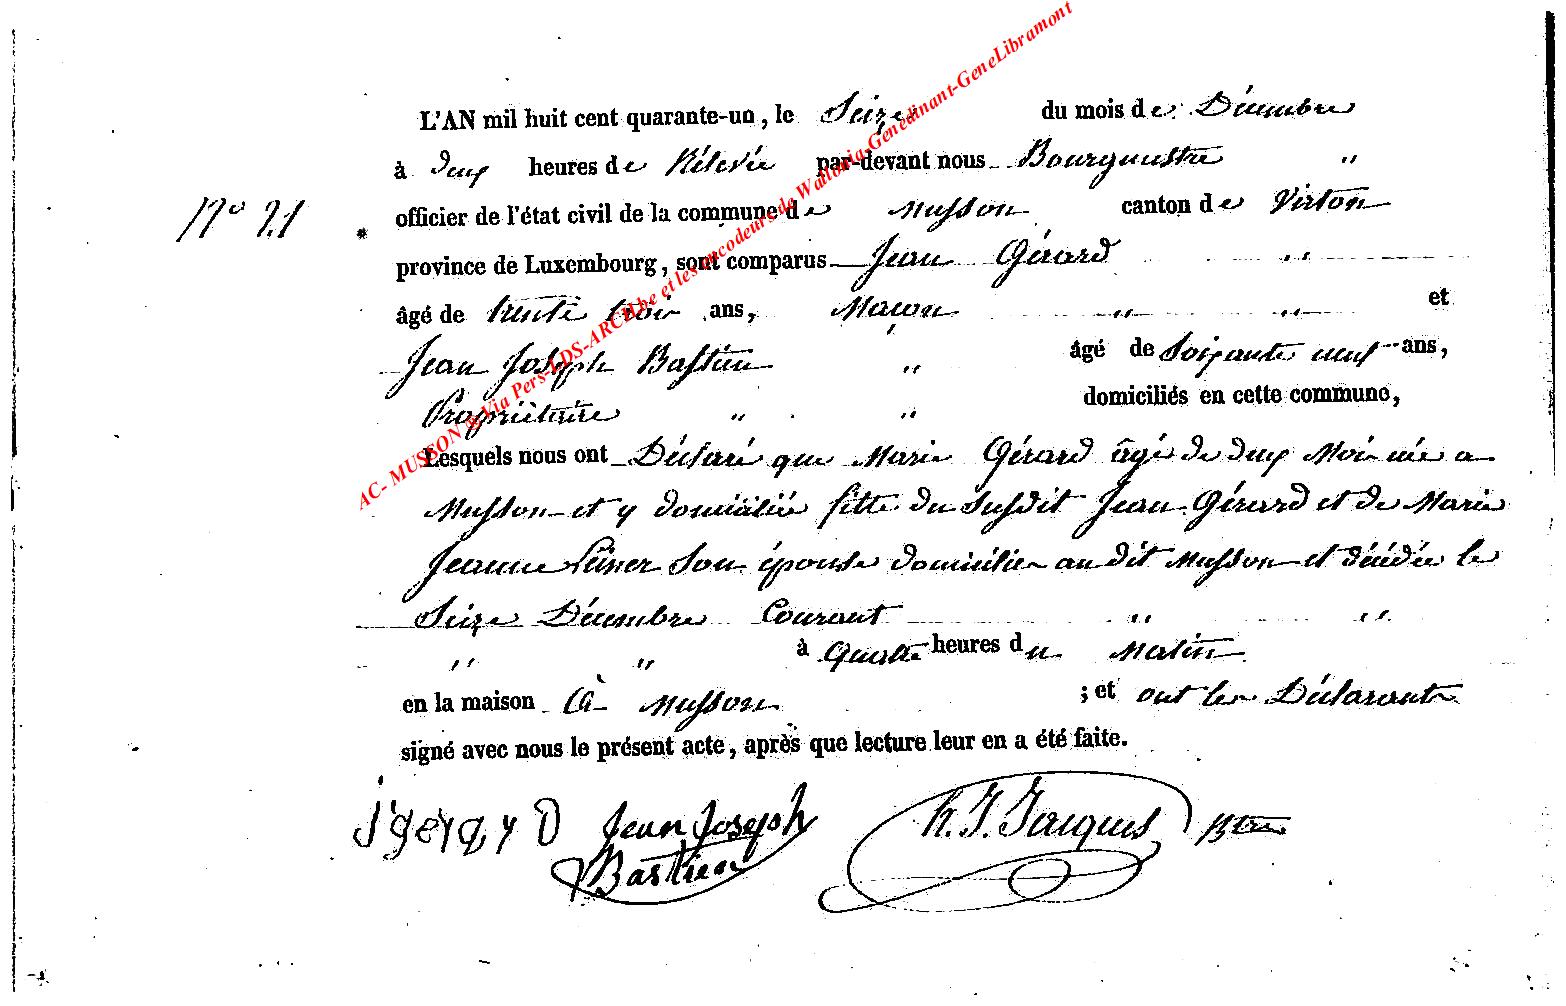 L'AN mil huit cent quarante-un, le Seize du mois de Décembre
à deux heures de Rélevée par-devant nous Bourguestre "
N° 21
officier de l'état civil de la commune de Musson canton de Virton
province de Luxembourg, sont comparus Jean Gérard "
âgé de trente trois ans, Maçon " " et
Jean Joseph Bastien " âgé de Soixante neuf ans,
Propriétaire " " domiciliés en cette commune,
Lesquels nous ont Déclaré que Marie Gérard âgé de deux Mois née a
Musson et y domiciliée fille du Susdit Jean Gérard et de Marie
Jeanne son épouse domicilier au dit Musson et décédée le
Seize Décembre Courant " "
" " à Quatre heures du Matin
en la maison à Musson ; et ont les Déclarants
signé avec nous le présent acte, après que lecture leur en a été faite.
J gerard Jean Joseph Bastien Jacques
AC- MUSSON @ Via Pers-LDS-ARCH.be et les encodeurs de Wallonia-Genedinant-GeneLibramont